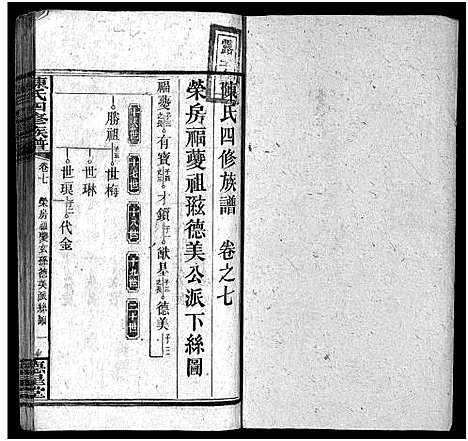 陳氏四修族譜 卷之七
榮房福夔祖玹德美公派下絲圖
福夔 有寶 才鎖 猷星 德美
十六世 十七世 十八世 十九世 二十世
勝祖 世梅
世琳
世琅 代金
陳氏四修族譜 卷七 榮房福夔玄孫德美派絲圖 一